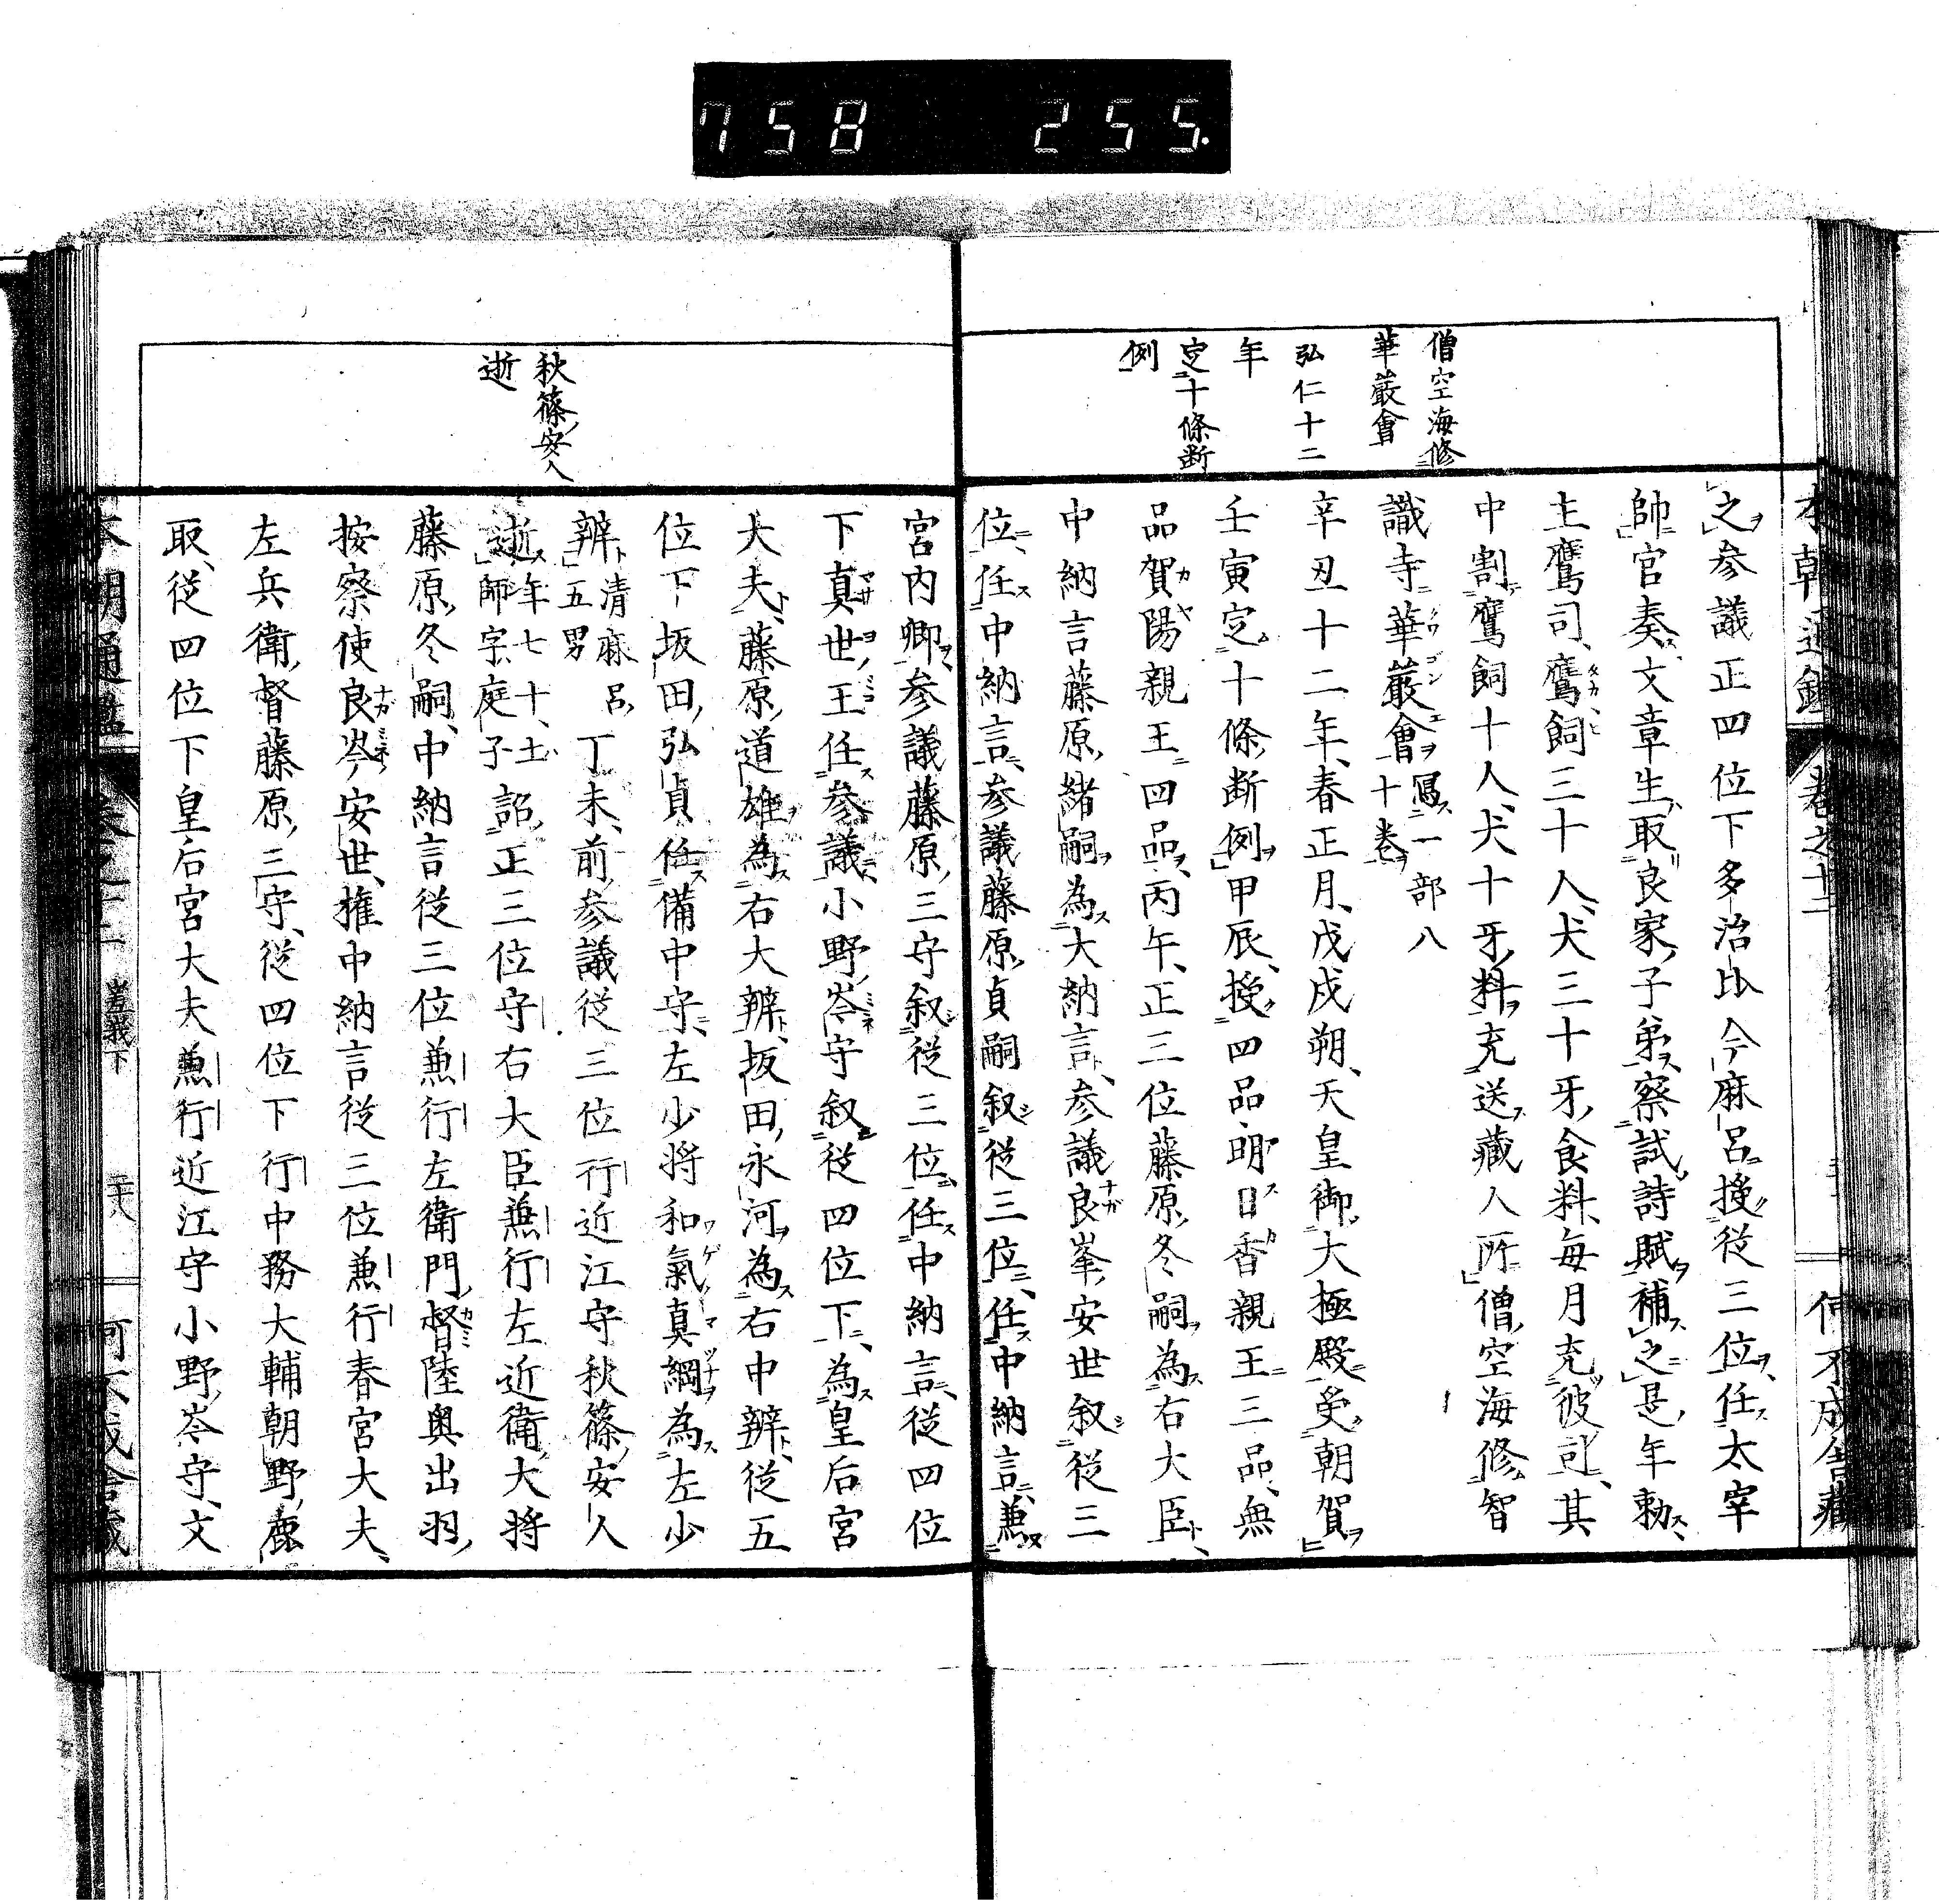 758 255.
僧空海修
華嚴會
弘仁十二
年
定十條断
例
之参議正四位下多治比今麻呂授從三位任太宰
帥官奏文章生取良家子弟察試詩賦補之是年勅
主鷹司鷹飼三十人犬三十牙食料每月充彼司其
中割鷹飼十人犬十牙料充送藏人所僧空海修智
識寺華嚴會寫一部八
十卷
辛丑十二年春正月戊戌朔天皇御大極殿受朝賀
壬寅定十條断例甲辰授四品明日香親王三品無
品賀陽親王四品丙午正三位藤原冬嗣為右大臣
中納言藤原緒嗣為大納言参議良峯安世叙從三
位任中納言参議藤原貞嗣叙從三位任中納言兼
秋篠安人
逝
宮内卿参議藤原三守叙從三位任中納言從四位
下真世王任參議小野岑守叙從四位下為皇后宮
大夫藤原道雄為右大辨坂田永河為右中辨從五
位下坂田弘貞任備中守左少将和氣真綱為左少
辨清麻呂
五男
丁未前参議從三位行近江守秋篠安人
逝年七十土
師宇庭子
詔正三位守右大臣兼行左近衛大将
藤原冬嗣中納言從三位兼行左衛門督陸奥出羽
按察使良岑安世権中納言從三位兼行春宮大夫
左兵衛督藤原三守從四位下行中務大輔朝野鹿
取從四位下皇后宮大夫兼行近江守小野岑守文
本朝通鑑 卷之十二 嵯峨下 三十八 何不成舎藏